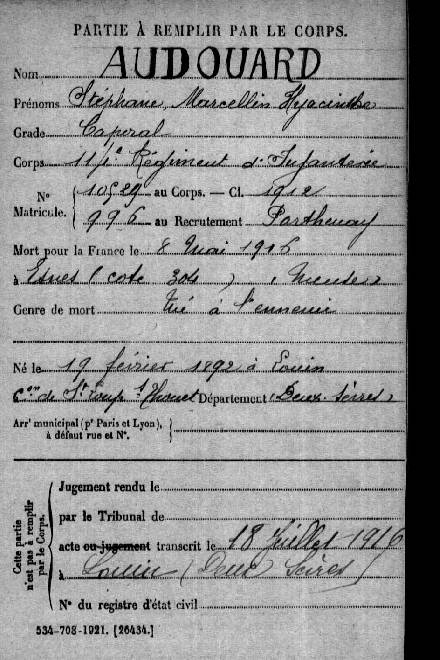 PARTIE À REMPLIR PAR LE CORPS.
Nom AUDOUARD
Prénoms Stéphane, Marcellin Hyacinthe
Grade Caporal
Corps 114e Régiment d'Infanterie
N° Matricule. { 10529 au Corps. — Cl. 1912
996 au Recrutement Parthenay
Mort pour la France le 8 Mai 1916
à Esnes (cote 304) (Meuse)
Genre de mort Tué à l'ennemi
Né le 19 février 1892 à Louin
Con de St Loup s/ Thouet Département (Deux-Sèvres)
Arrt municipal (pr Paris et Lyon), à défaut rue et N°.
Cette partie n'est pas à remplir par le Corps.
Jugement rendu le
par le Tribunal de
acte ou jugement transcrit le 18 Juillet 1916
à Louin (Deux Sèvres)
N° du registre d'état civil
534-708-1921. [26434.]